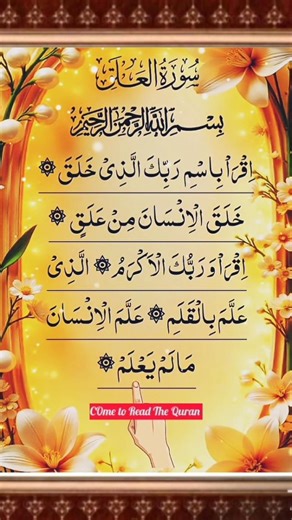 سُورَةُ العَلَق
بِسْمِ اللهِ الرَّحْمٰنِ الرَّحِيْمِ
اِقْرَاْ بِاسْمِ رَبِّكَ الَّذِىْ خَلَقَ ۞
خَلَقَ الْاِنْسَانَ مِنْ عَلَقٍ ۞
اِقْرَاْ وَرَبُّكَ الْاَكْرَمُ ۞ الَّذِىْ
عَلَّمَ بِالْقَلَمِ ۞ عَلَّمَ الْاِنْسَانَ
مَالَمْ يَعْلَمْ ۞
COme to Read The Quran